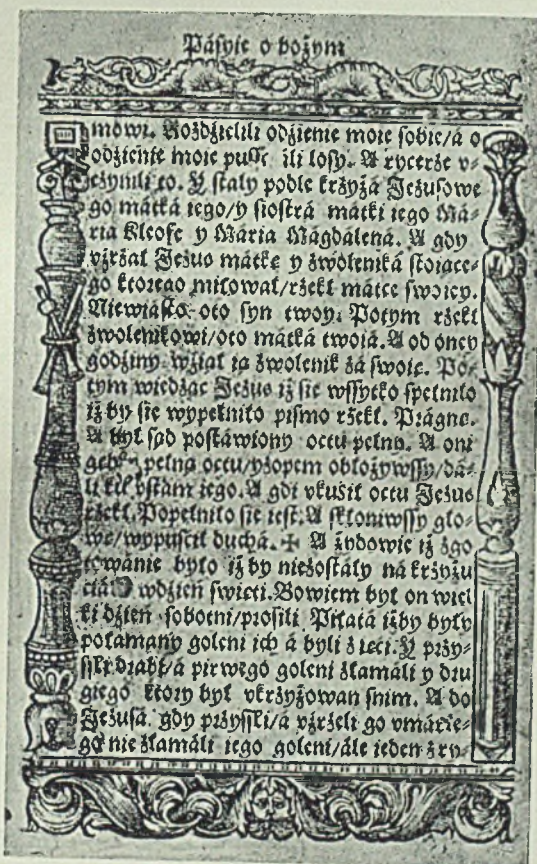 Pásyie o bożym
mowi. Rozdzielili odzienie moie sobie/á o
odzienie moie puſſcili losy. A rycerze v-
czynili to. Y staly podle krzyżá Jezusowe
go mátká iego/y siostrá mátki iego Má-
ria Kleofe y Maria Mágdalená. A gdy
vzrzał Jezus mátkę y zwoleniká stoiące-
go ktorego miłował/rzekł mátce swoiey.
Niewiásto oto syn twoy. Potym rzekł
zwolenikowi/oto mátká twoiá. A od oney
godziny wziął ią zwolenik zá swoię. Po-
tym wiedząc Jezus iż sie wssytko spełniło
iż by się wypełniło pismo rzekł. Prágnę.
A był sąd postáwiony octu pełny. A oni
pełną octu/yzopem obłożywssy/dá-
li vstam iego. A gdi vkusił octu Jezus
rzekł. Popełniło sie iest. A skłoniwssy gło-
wę/wypuścił duchá. ✠ A żydowie iż zgo
towánie było iż by niezostáły ná krzyżu
ciáłá wdzień święti. Bowiem był on wiel
ki dzień sobotni/prosili Piłatá iżby były
połamány goleni ich á byli zięci. Y przy-
ssłi drabi/á pirwego goleni złamáli y dru
giego ktory był vkrzyżowan snim. A do
Jezusá gdy przyssłi/á vzrzeli go vmárłe-
go nie złamáli iego goleni/ále ieden z ry-